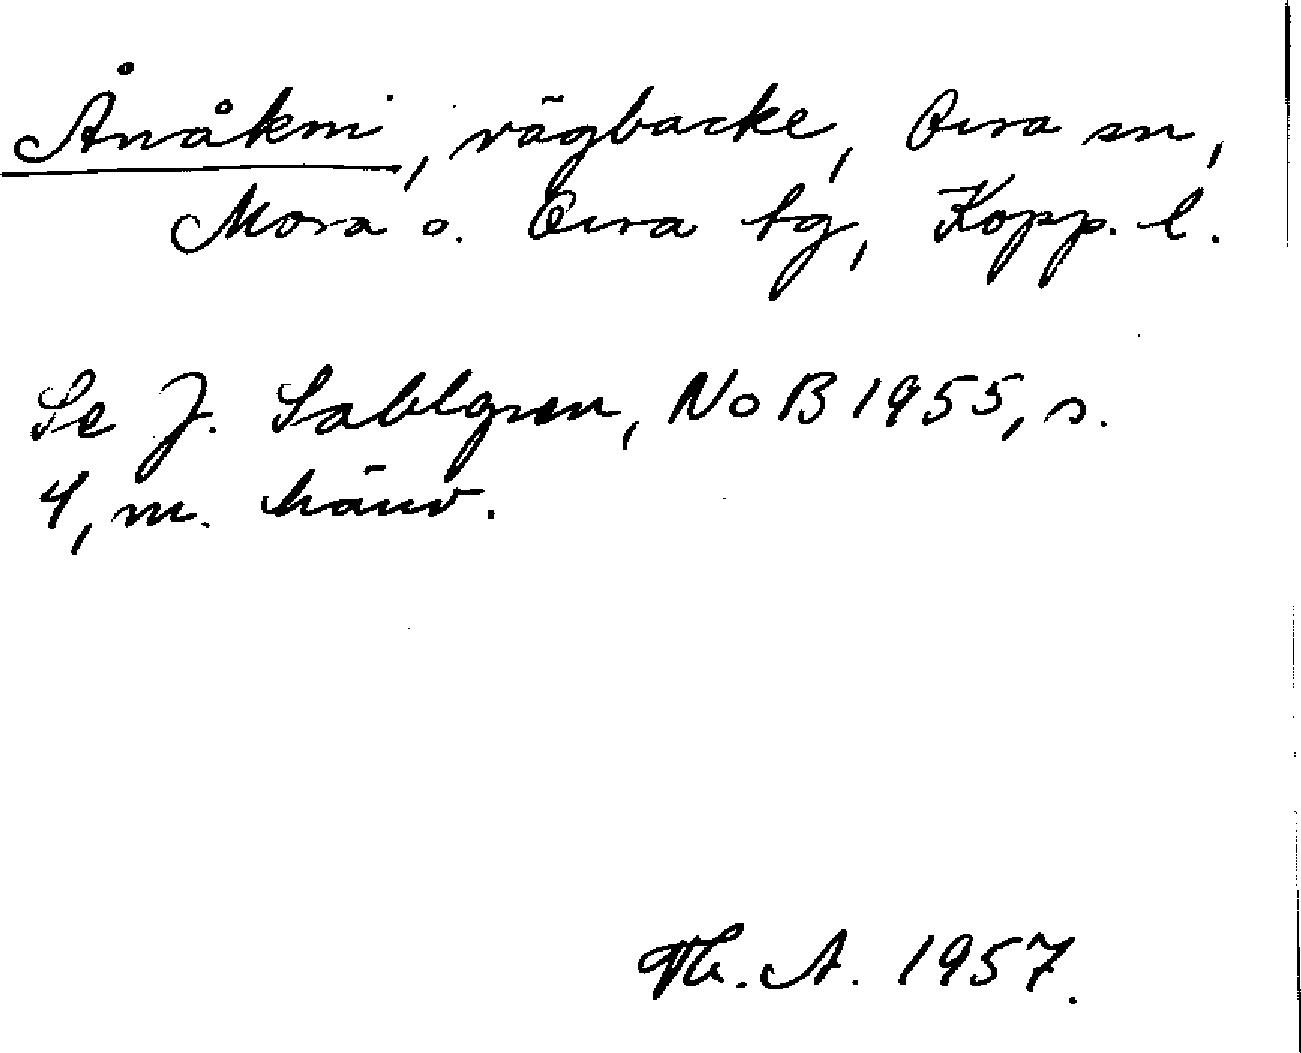 Ånåkmi, vägbacke, Orsa sn,
Mora o. Orsa tg, Kopp. l.
Se J. Sahlgren, NoB 1955, s.
4, m. hänv.
Th. A. 1957.